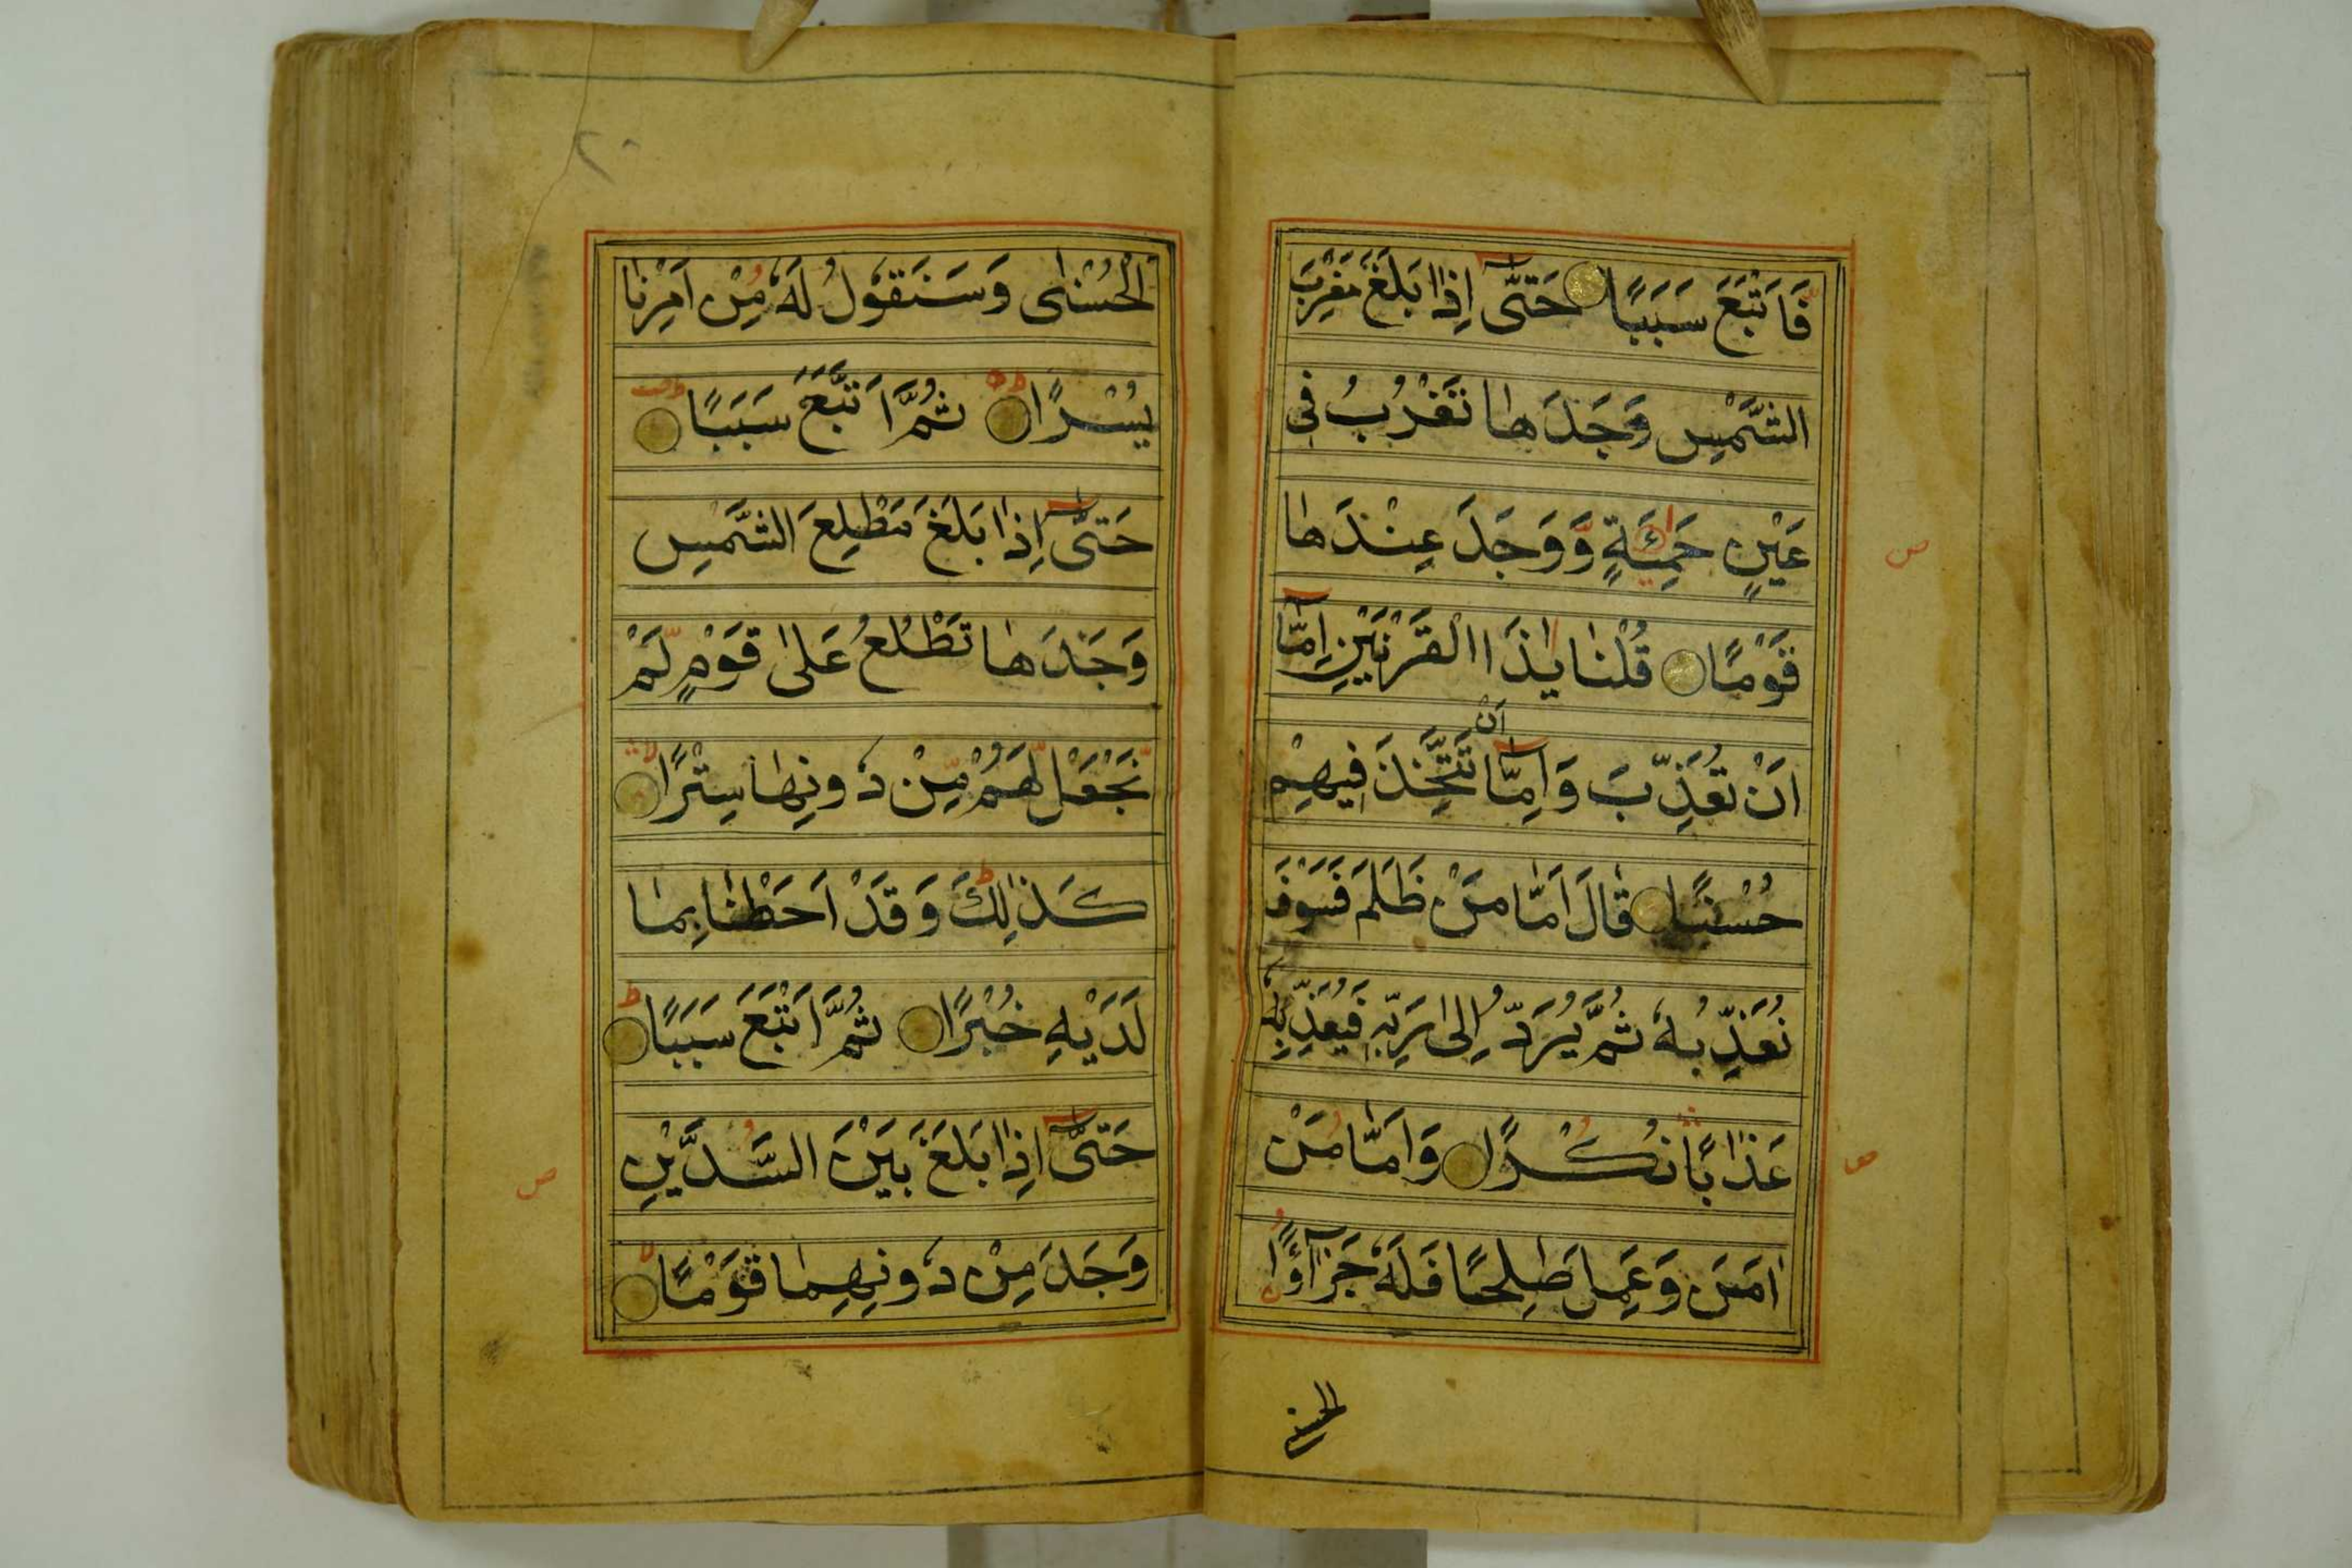 فَاَتْبَعَ سَبَبًا حَتّٰٓى اِذٰا بَلَغَ مَغْرِبَ
الشَّمْسِ وَجَدَهٰا تَغْرُبُ فِى
عَيْنٍ حَمِئَةٍ وَّوَجَدَ عِنْدَهٰا
قَوْمًا قُلْنٰا يٰذَا الْقَرْنَيْنِ اِمّٰٓا
اَنْ تُعَذِّبَ وَاِمّٰٓا اَنْ تَتَّخِذَ فِيهِمْ
حُسْنًا قٰالَ اَمّٰا مَنْ ظَلَمَ فَسَوْفَ
نُعَذِّبُهٗ ثُمَّ يُرَدُّ اِلٰى رَبِّهٖ فَيُعَذِّبُهٗ
عَذٰابًا نُكْرًا وَاَمّٰا مَنْ
اٰمَنَ وَعَمِلَ صٰلِحًا فَلَهٗ جَزَآءًا
الْحُسْنٰى وَسَنَقُولُ لَهٗ مِنْ اَمْرِنٰا
يُسْرًا ثُمَّ اَتْبَعَ سَبَبًا
حَتّٰٓى اِذٰا بَلَغَ مَطْلِعَ الشَّمْسِ
وَجَدَهٰا تَطْلُعُ عَلٰى قَوْمٍ لَّمْ
نَجْعَلْ لَّهُمْ مِّنْ دُونِهٰا سِتْرًا
كَذٰلِكَ وَقَدْ اَحَطْنٰا بِمٰا
لَدَيْهِ خُبْرًا ثُمَّ اَتْبَعَ سَبَبًا
حَتّٰٓى اِذٰا بَلَغَ بَيْنَ السَّدَّيْنِ
وَجَدَ مِنْ دُونِهِمٰا قَوْمًا